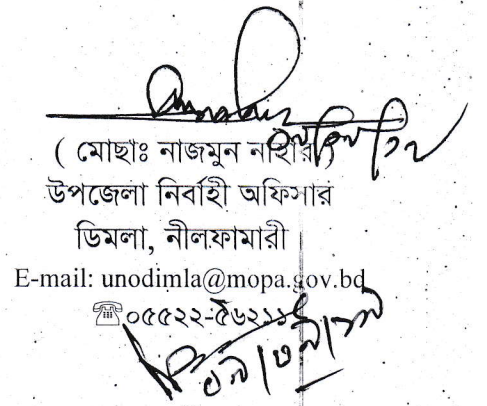 ( মোছাঃ নাজমুন নাহার )
উপজেলা নির্বাহী অফিসার
ডিমলা, নীলফামারী
E-mail: unodimla@mopa.gov.bd
☏০৫৫২২-৫৬২১১